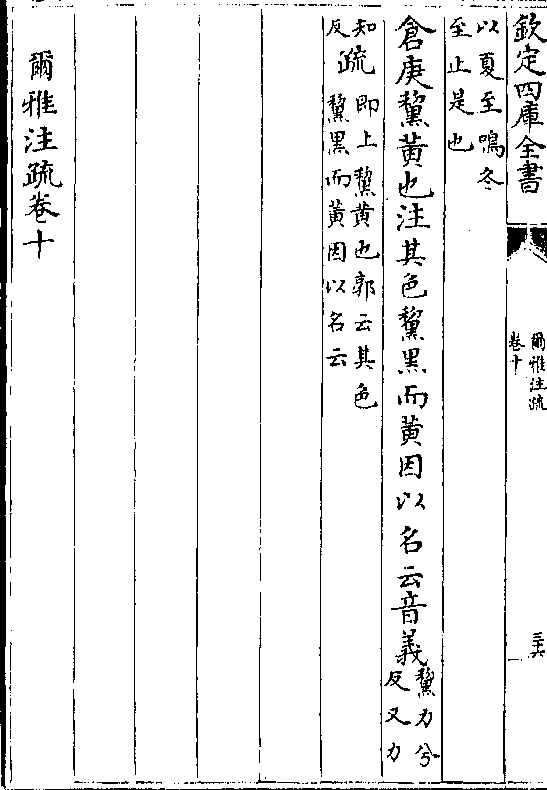 欽定四庫全書
爾雅注疏
卷十
三六
以夏至鳴冬
至止是也
倉庚黧黃也注其色黧黑而黃因以名云音義黧力兮
反又力
知
反疏即上黧黃也郭云其色
黧黑而黃因以名云
爾雅注疏卷十